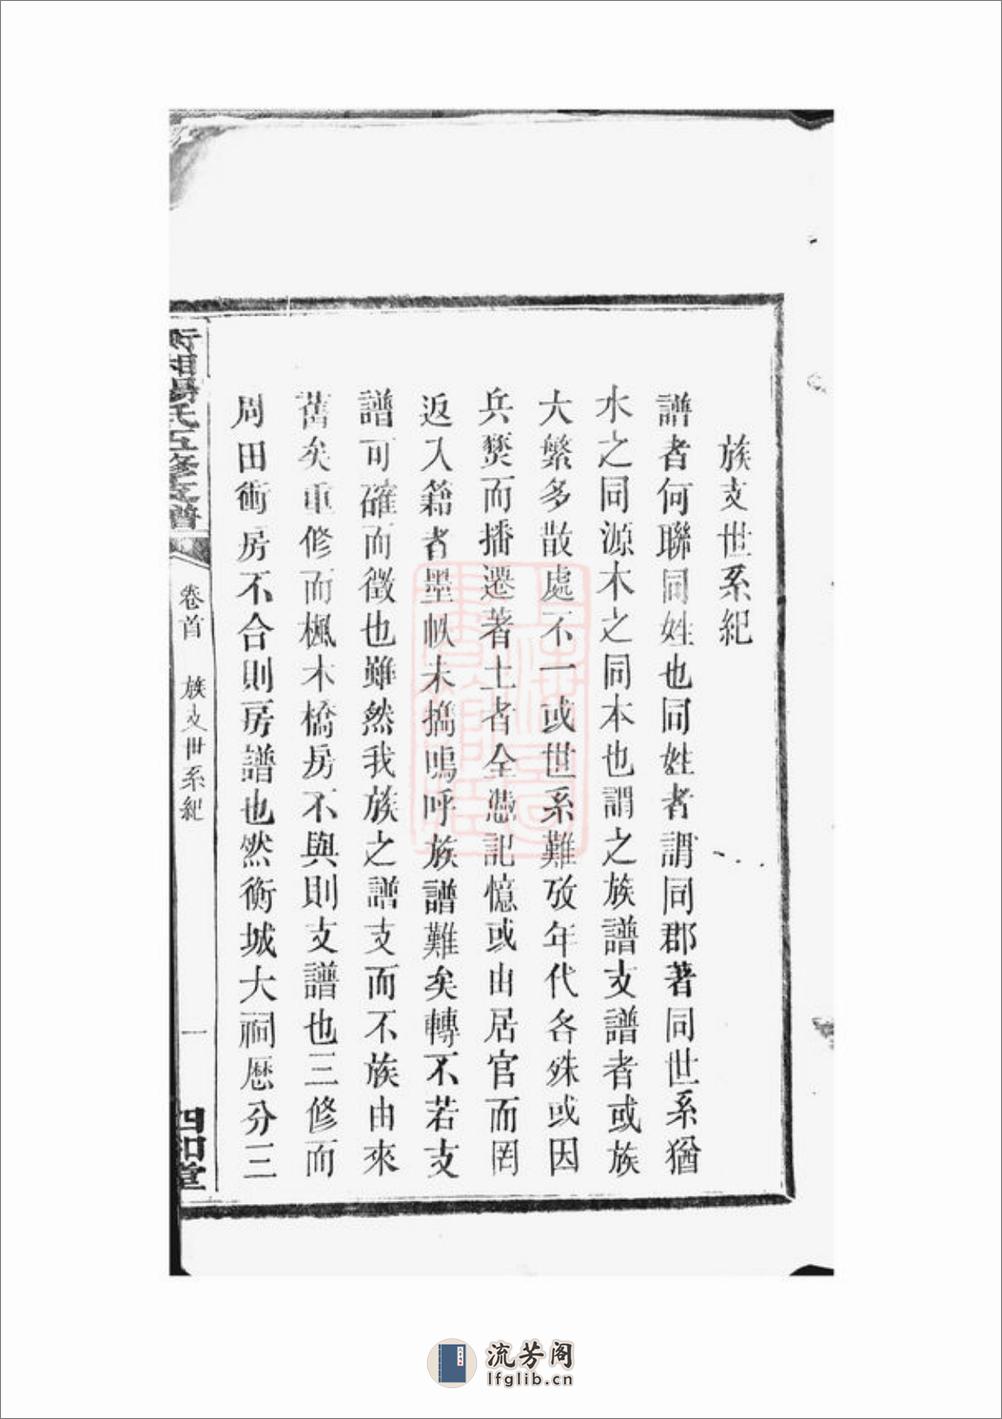 族支世系紀
譜者何聯同姓也同姓者謂同郡著同世系猶
水之同源木之同本也謂之族譜支譜者或族
大繁多散處不一或世系難攷年代各殊或因
兵燹而播遷著土者全憑記憶或由居官而罔
返入籍者墨帙未擕嗚呼族譜難矣轉不若支
譜可確而徵也雖然我族之譜支而不族由來
舊矣重修而楓木橋房不與則支譜也三修而
周田衝房不合則房譜也然衡城大祠歷分三
氏五修支譜
卷首
族支世系紀
一
四和堂
流芳阁
lfglib.cn